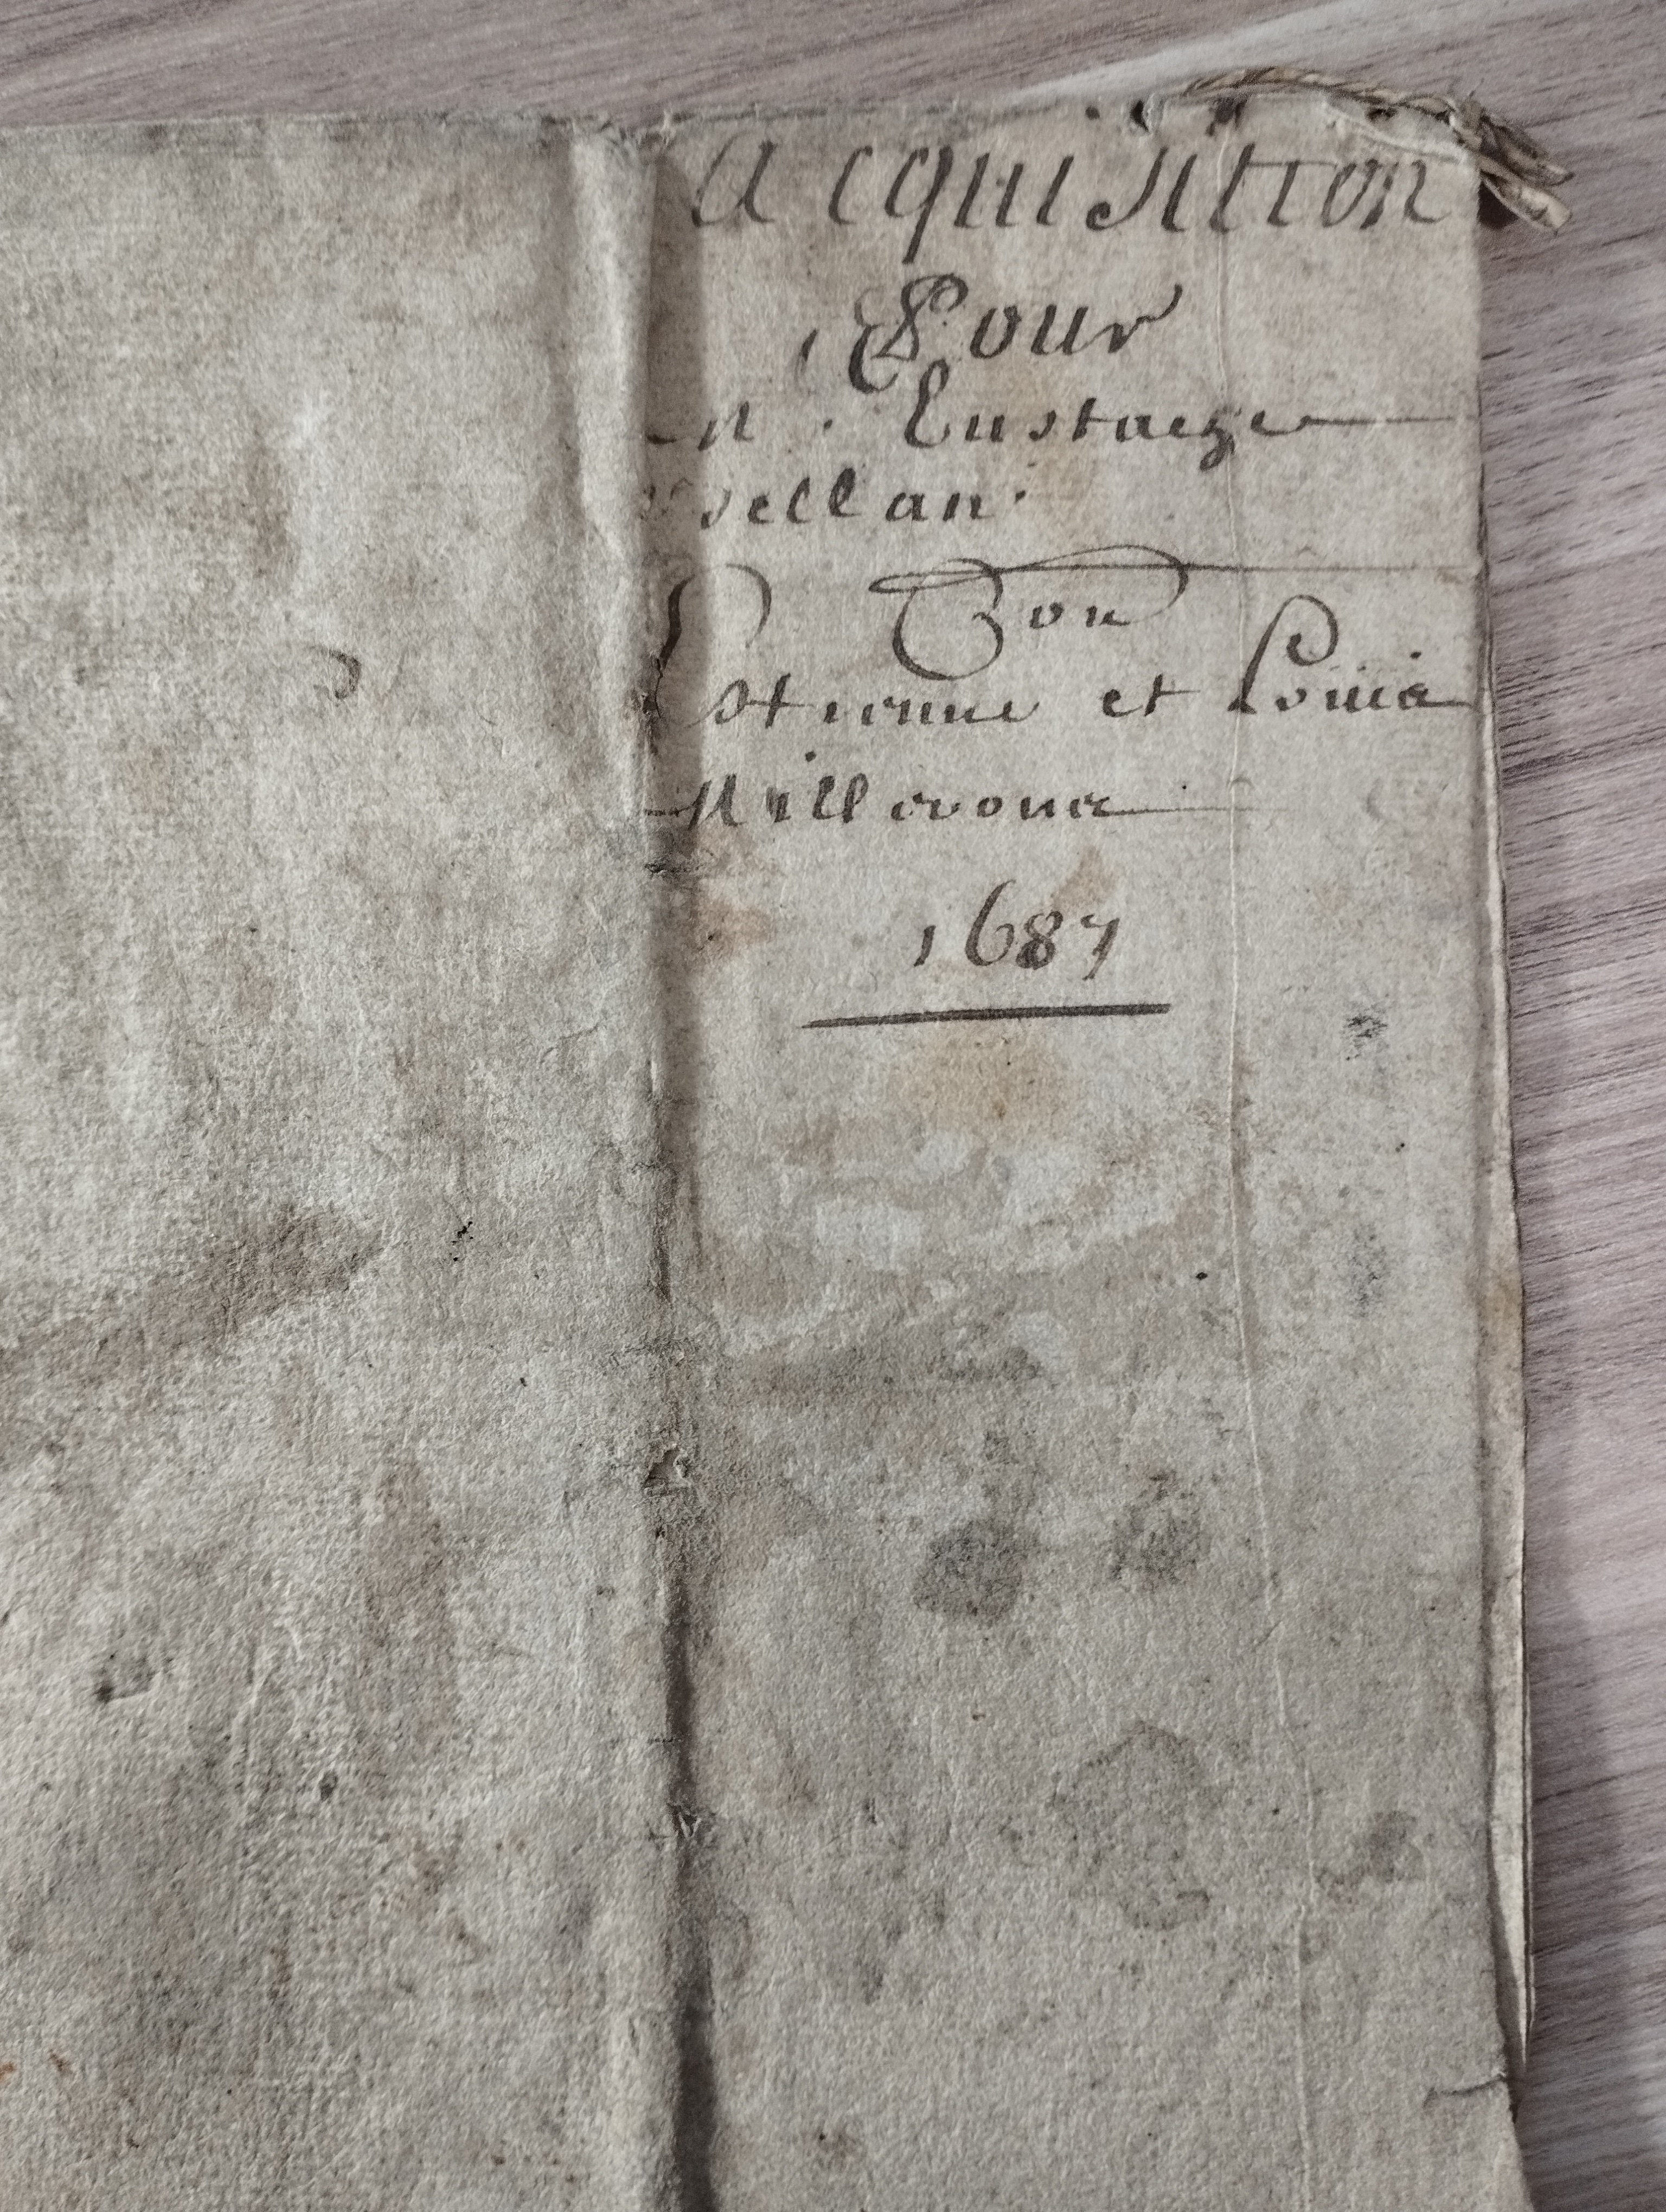 acquisition
Pour
M. Eustache
sellan.
Con
Estienne et Louis
1687